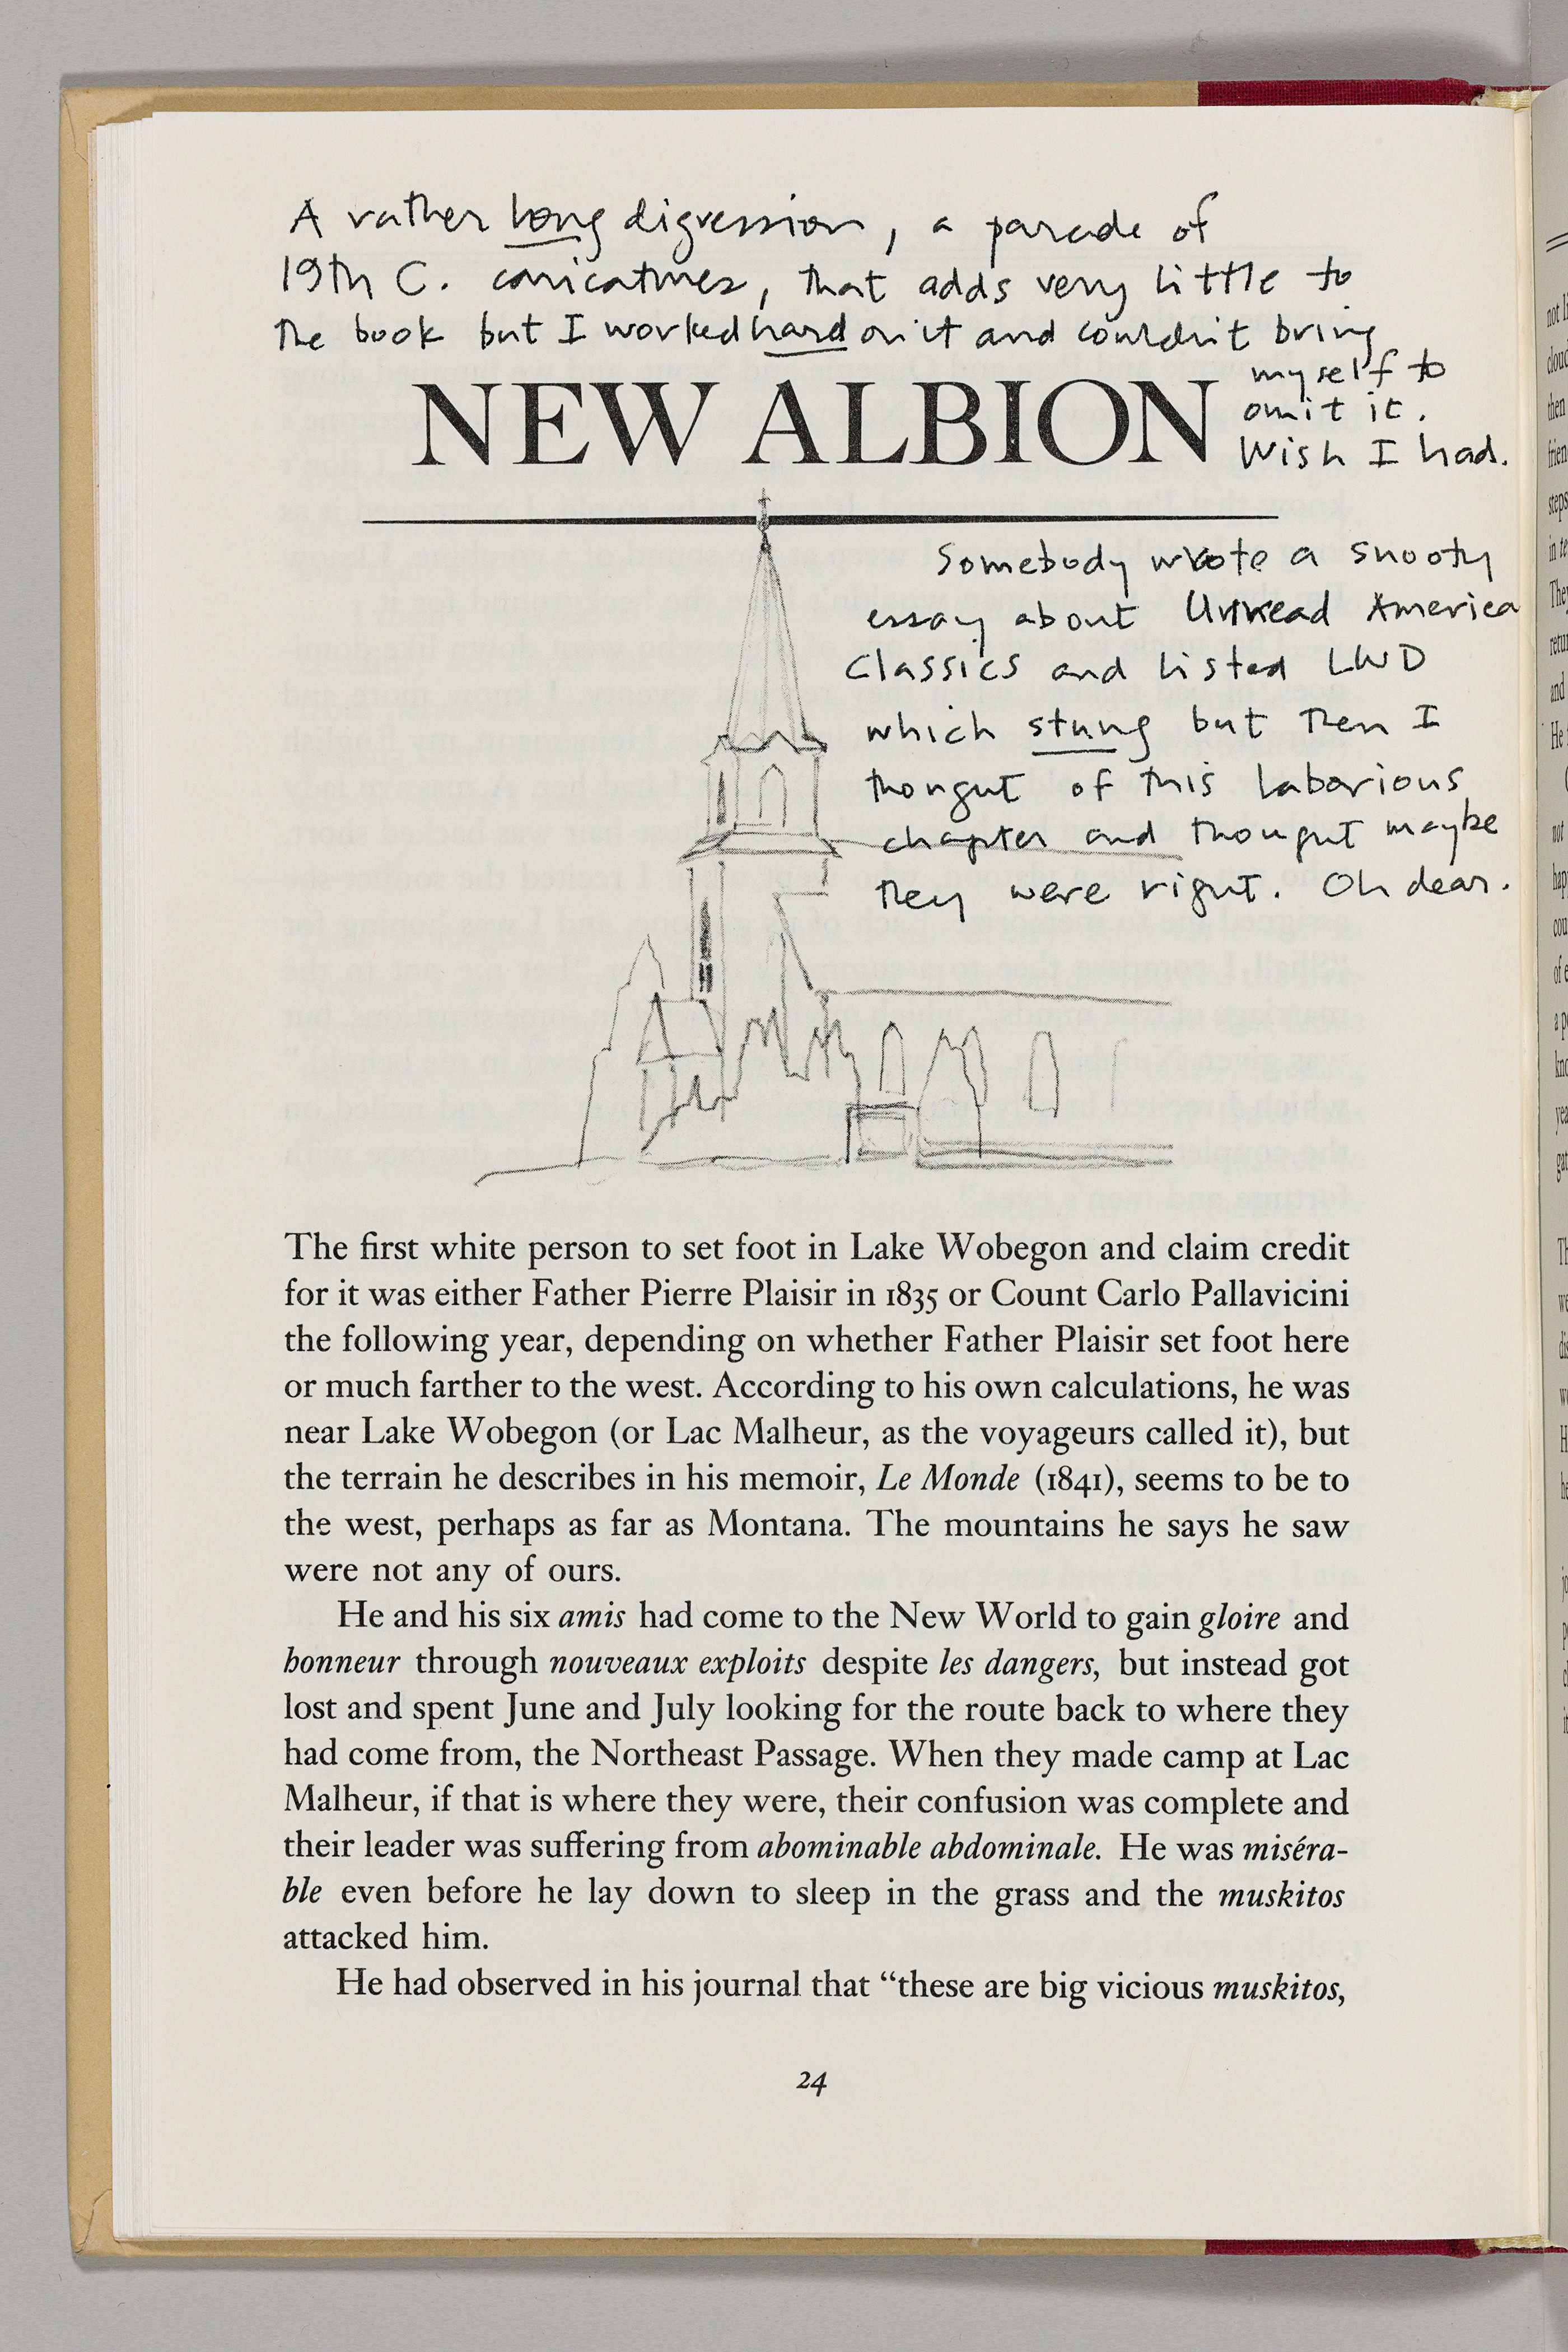 A rather long digression, a parade of
19th C. caricatures, that adds very little to
the book but I worked hard on it and couldn't bring
myself to
omit it.
Wish I had.
NEW ALBION
Somebody wrote a snooty
essay about Unread America
Classics and listed LWD
which stung but then I
thought of this laborious
chapter and thought maybe
they were right. Oh dear.
The first white person to set foot in Lake Wobegon and claim credit
for it was either Father Pierre Plaisir in 1835 or Count Carlo Pallavicini
the following year, depending on whether Father Plaisir set foot here
or much farther to the west. According to his own calculations, he was
near Lake Wobegon (or Lac Malheur, as the voyageurs called it), but
the terrain he describes in his memoir, Le Monde (1841), seems to be to
the west, perhaps as far as Montana. The mountains he says he saw
were not any of ours.
He and his six amis had come to the New World to gain gloire and
honneur through nouveaux exploits despite les dangers, but instead got
lost and spent June and July looking for the route back to where they
had come from, the Northeast Passage. When they made camp at Lac
Malheur, if that is where they were, their confusion was complete and
their leader was suffering from abominable abdominale. He was miséra-
ble even before he lay down to sleep in the grass and the muskitos
attacked him.
He had observed in his journal that “these are big vicious muskitos,
24